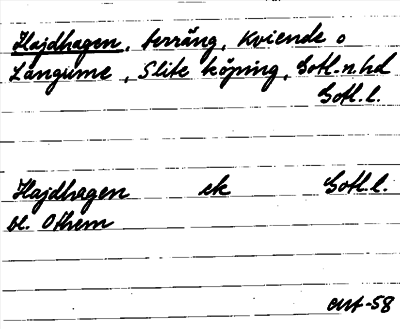 Hajdhagen, terräng, Kviende o
Långume, Slite köping, Gotl. n. hd
Gotl. l.
Hajdhagen ek Gotl. l.
bl. Othem
avt-58